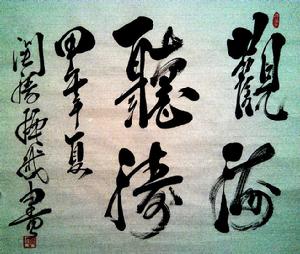 觀海
聽濤
甲午年夏
書